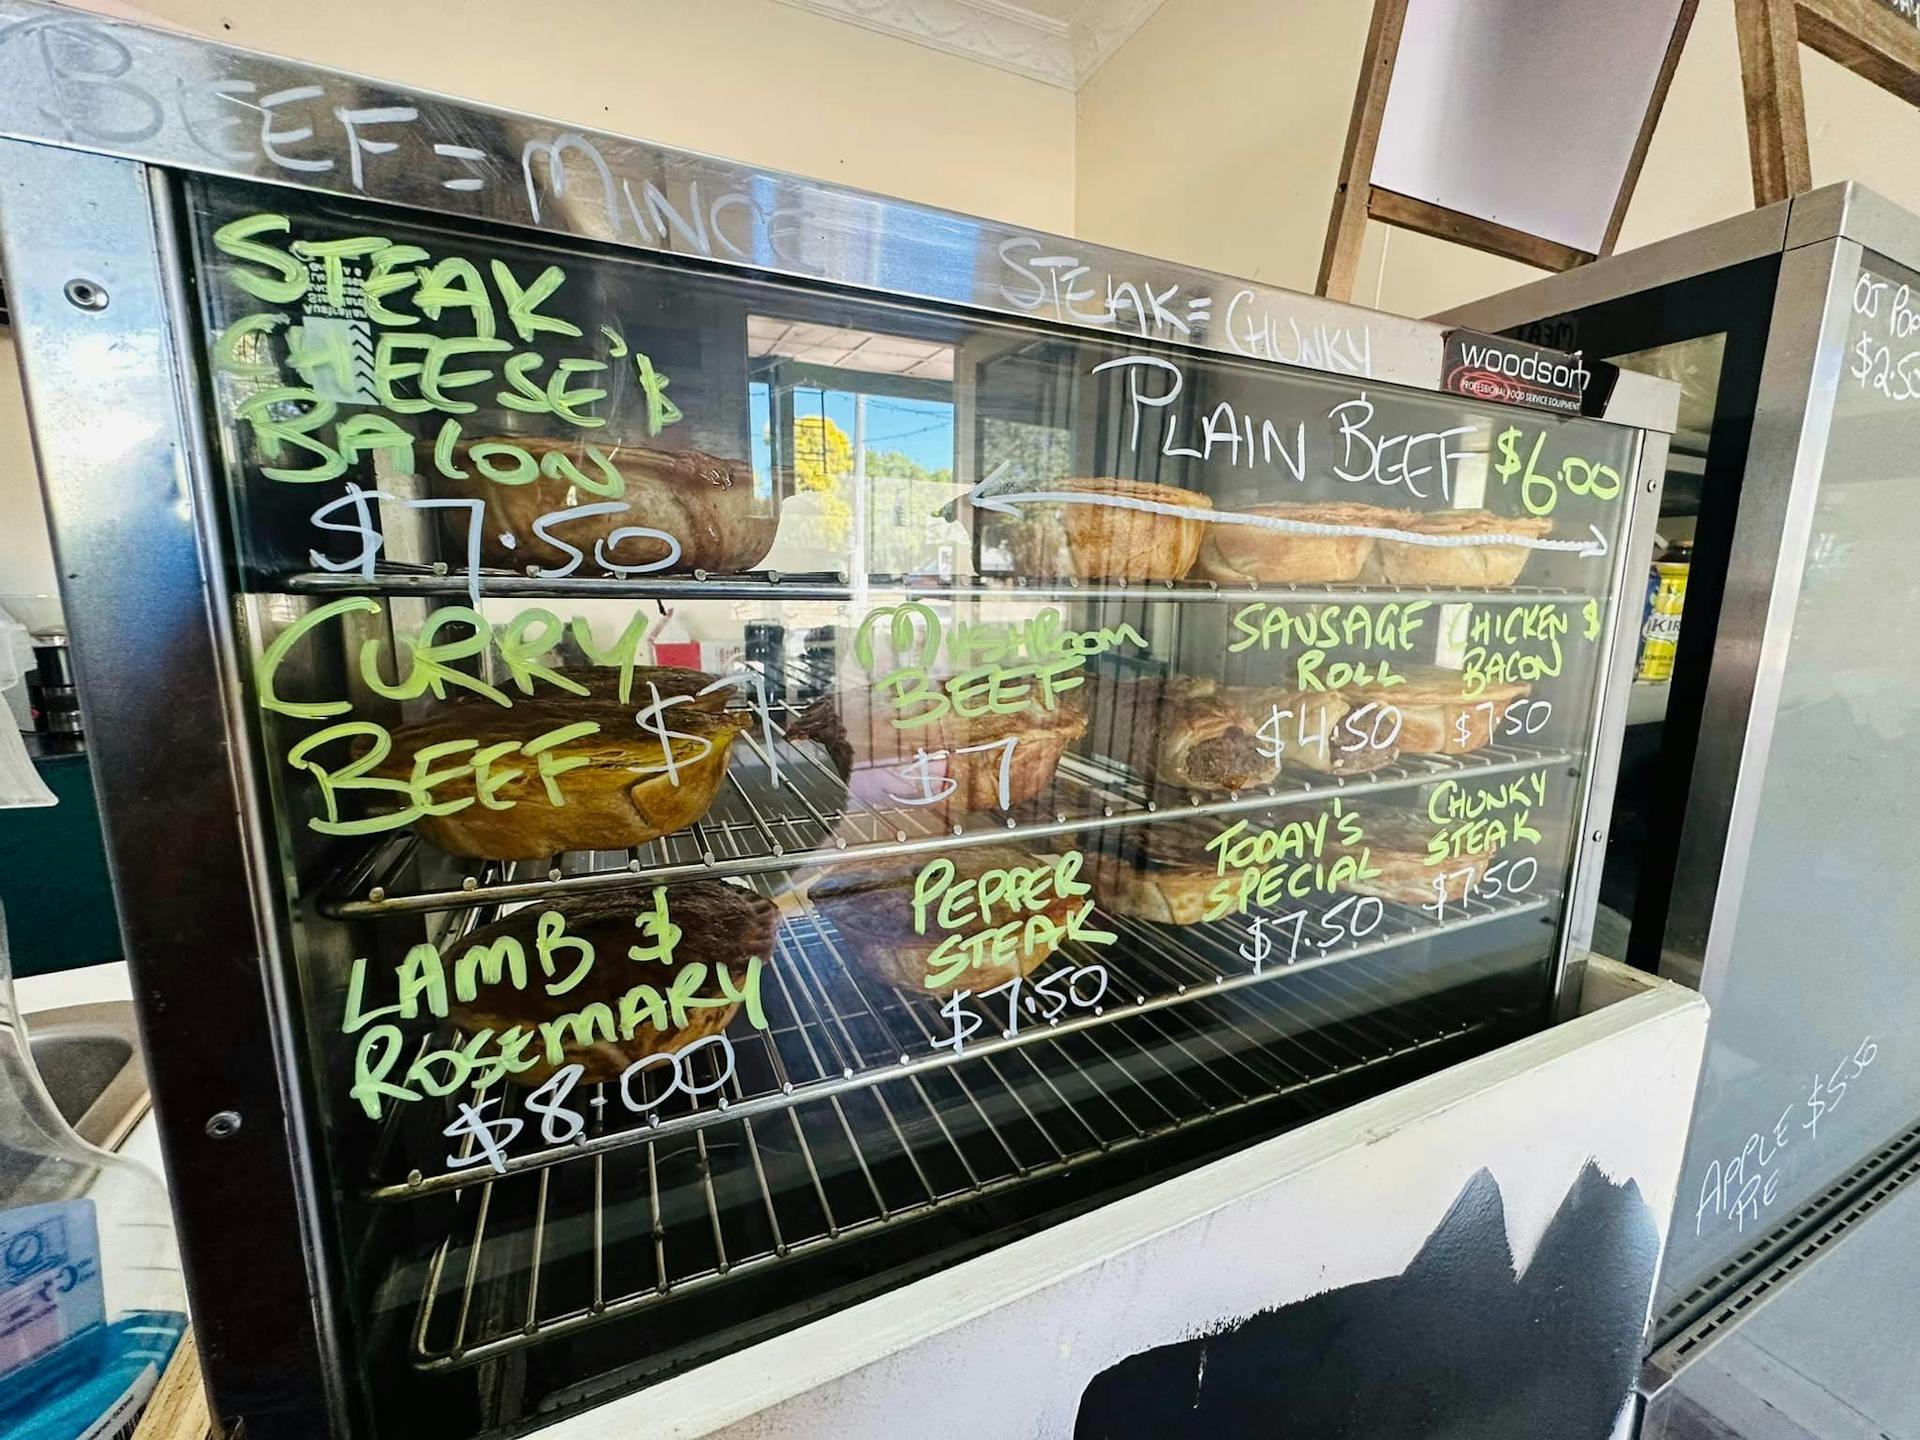 BEEF = MINCE
STEAK = CHUNKY
woodson
PROFESSIONAL FOOD SERVICE EQUIPMENT
STEAK
CHEESE &
BACON
$7.50
PLAIN BEEF $6.00
CURRY
BEEF $7
MUSHROOM
BEEF
$7
SAUSAGE
ROLL
$4.50
CHICKEN &
BACON
$7.50
LAMB &
ROSEMARY
$8.00
PEPPER
STEAK
$7.50
TODAY'S
SPECIAL
$7.50
CHUNKY
STEAK
$7.50
OJ
$2.50
APPLE $5.50
PIE